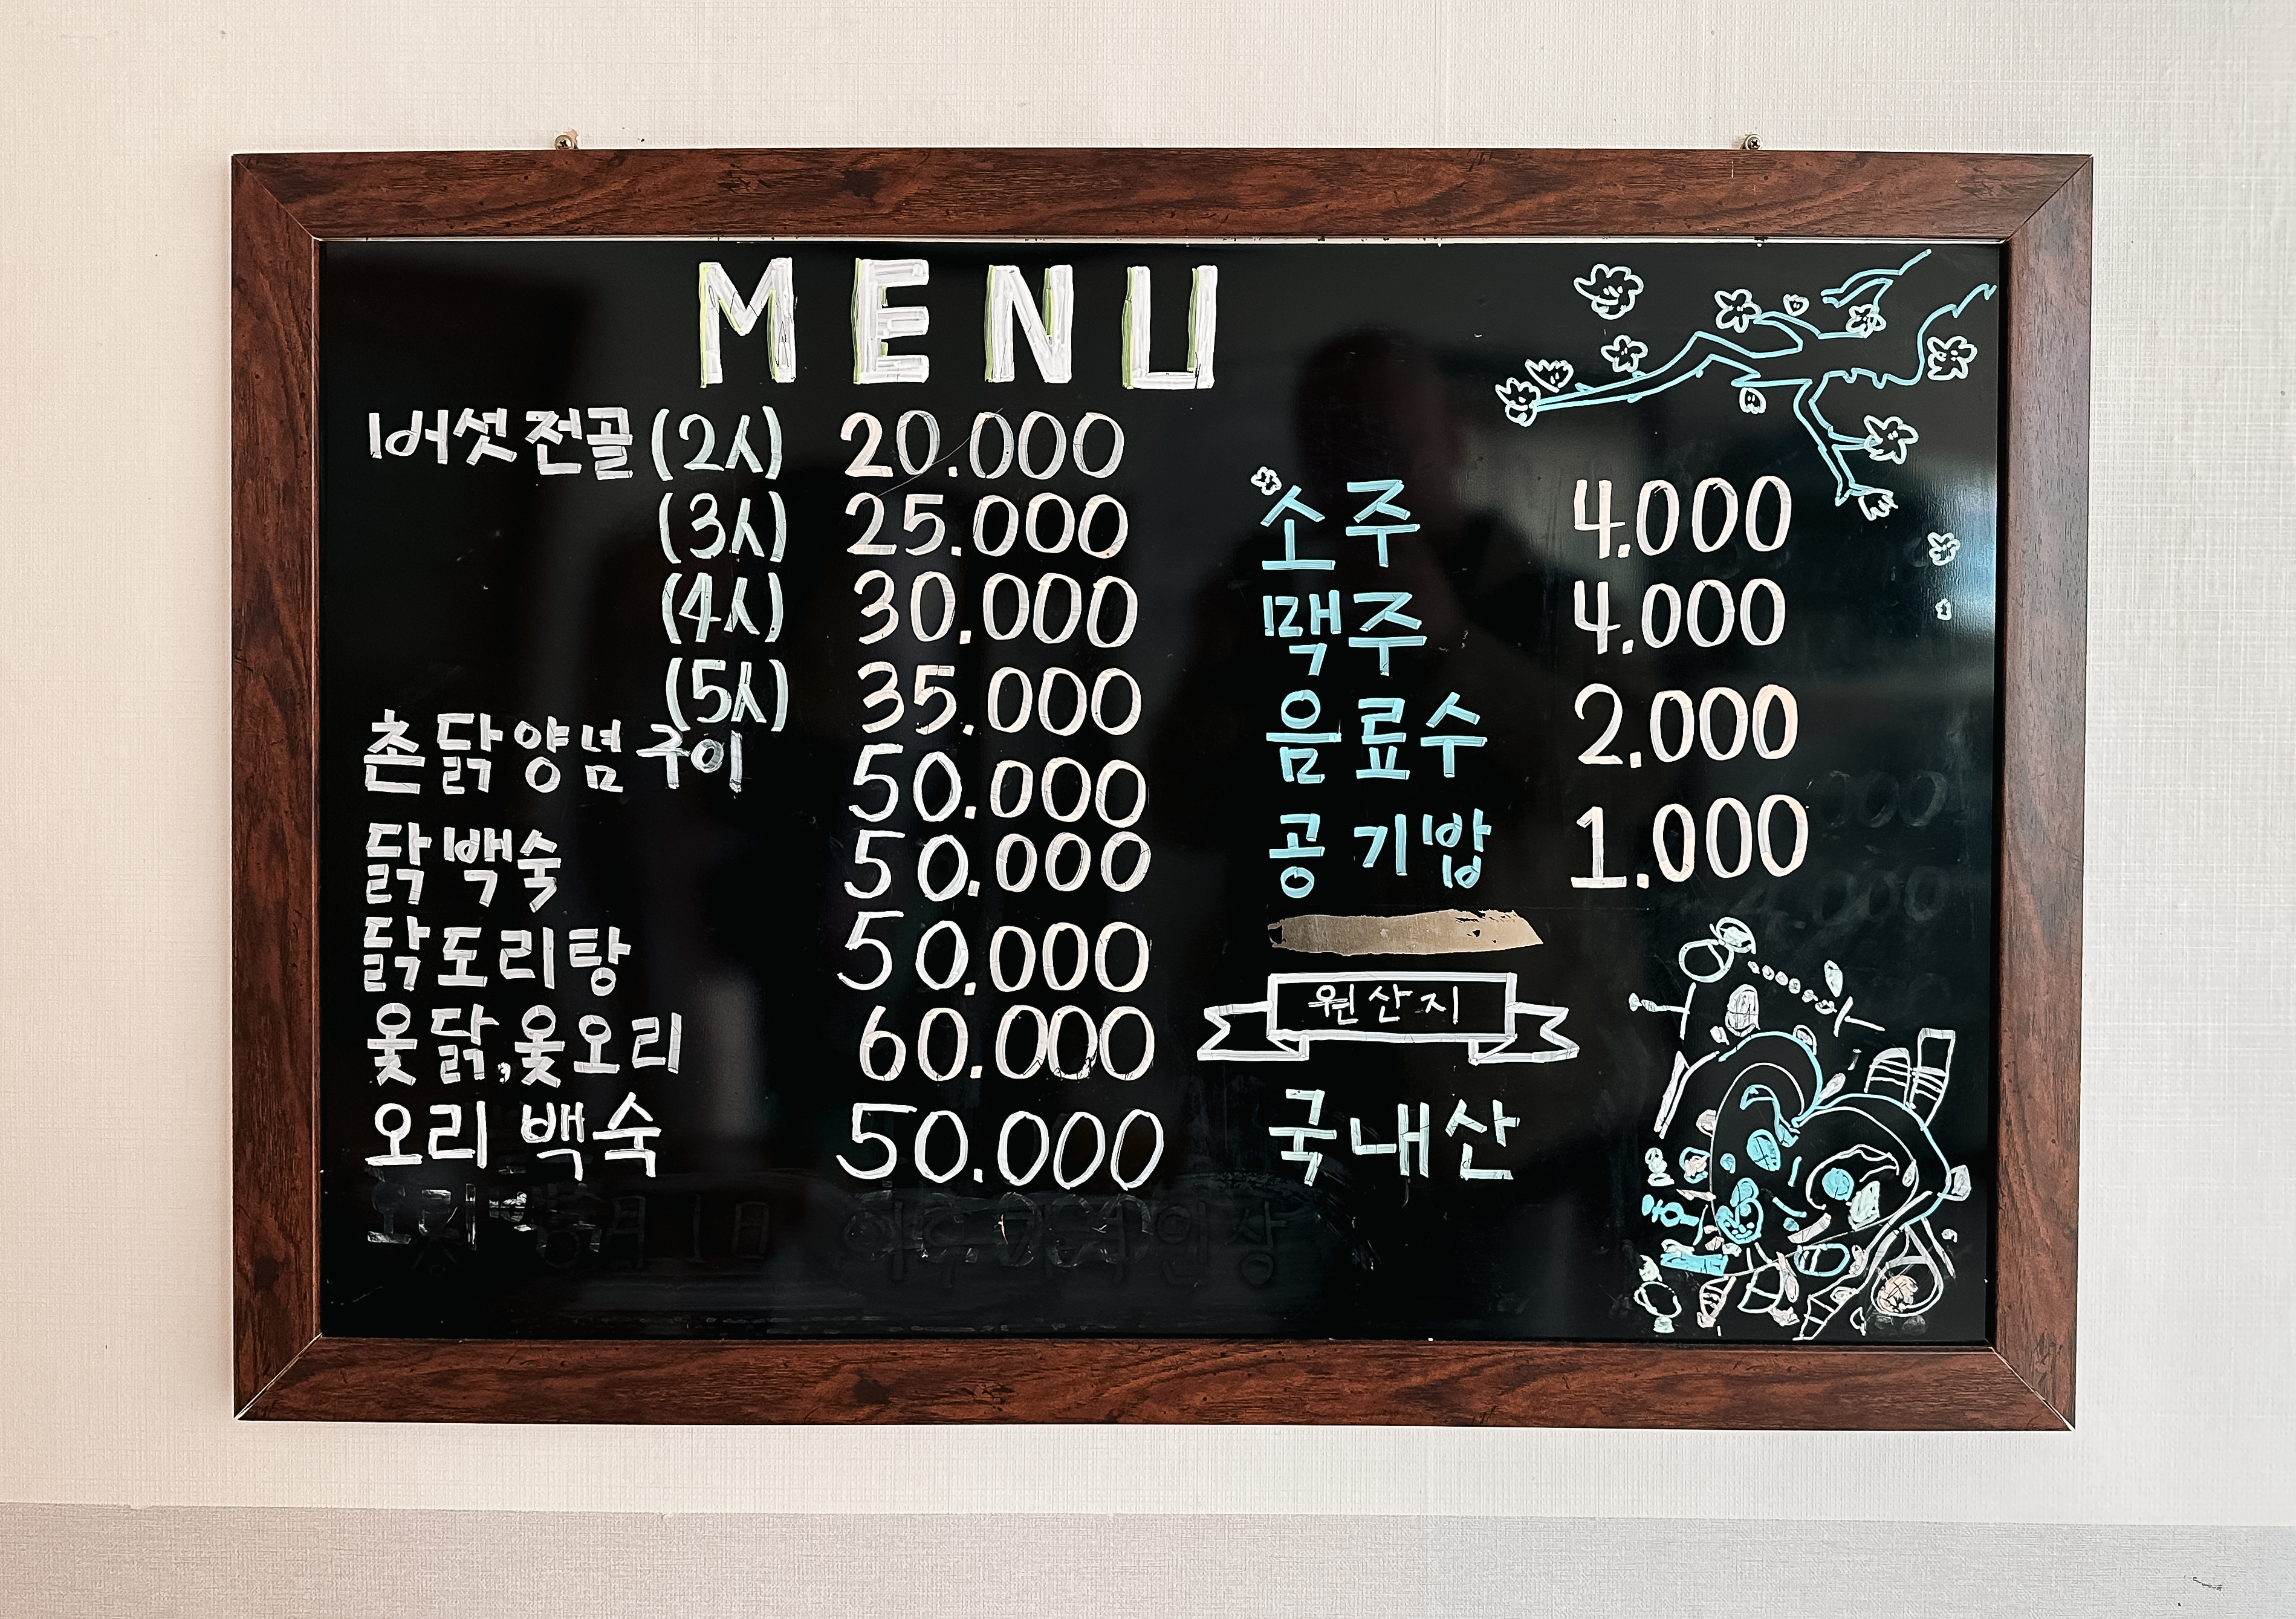 MENU
버섯전골 (2人) 20.000
(3人) 25.000
(4人) 30.000
(5人) 35.000
촌닭양념구이 50.000
닭백숙 50.000
닭도리탕 50.000
옻닭,옻오리 60.000
오리백숙 50.000
소주 4.000
맥주 4.000
음료수 2.000
공기밥 1.000
원산지
국내산